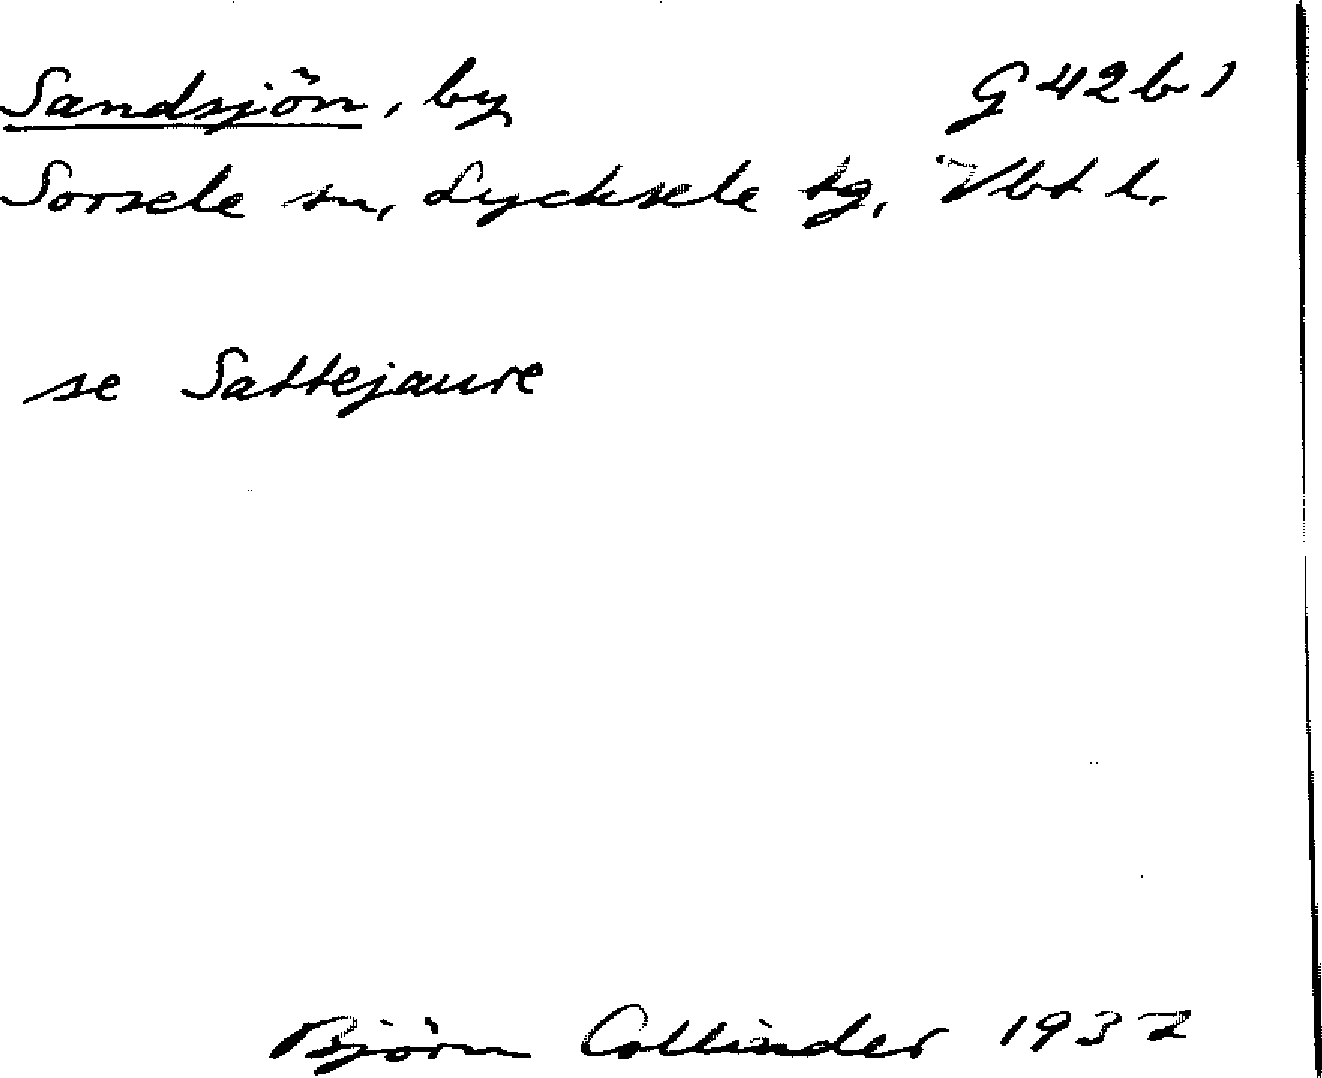 Sandsjön, by G 42 b 1
Sorsele sn, Lycksele tg, Vbt l.
se Sattejaure
Björn Collinder 1937